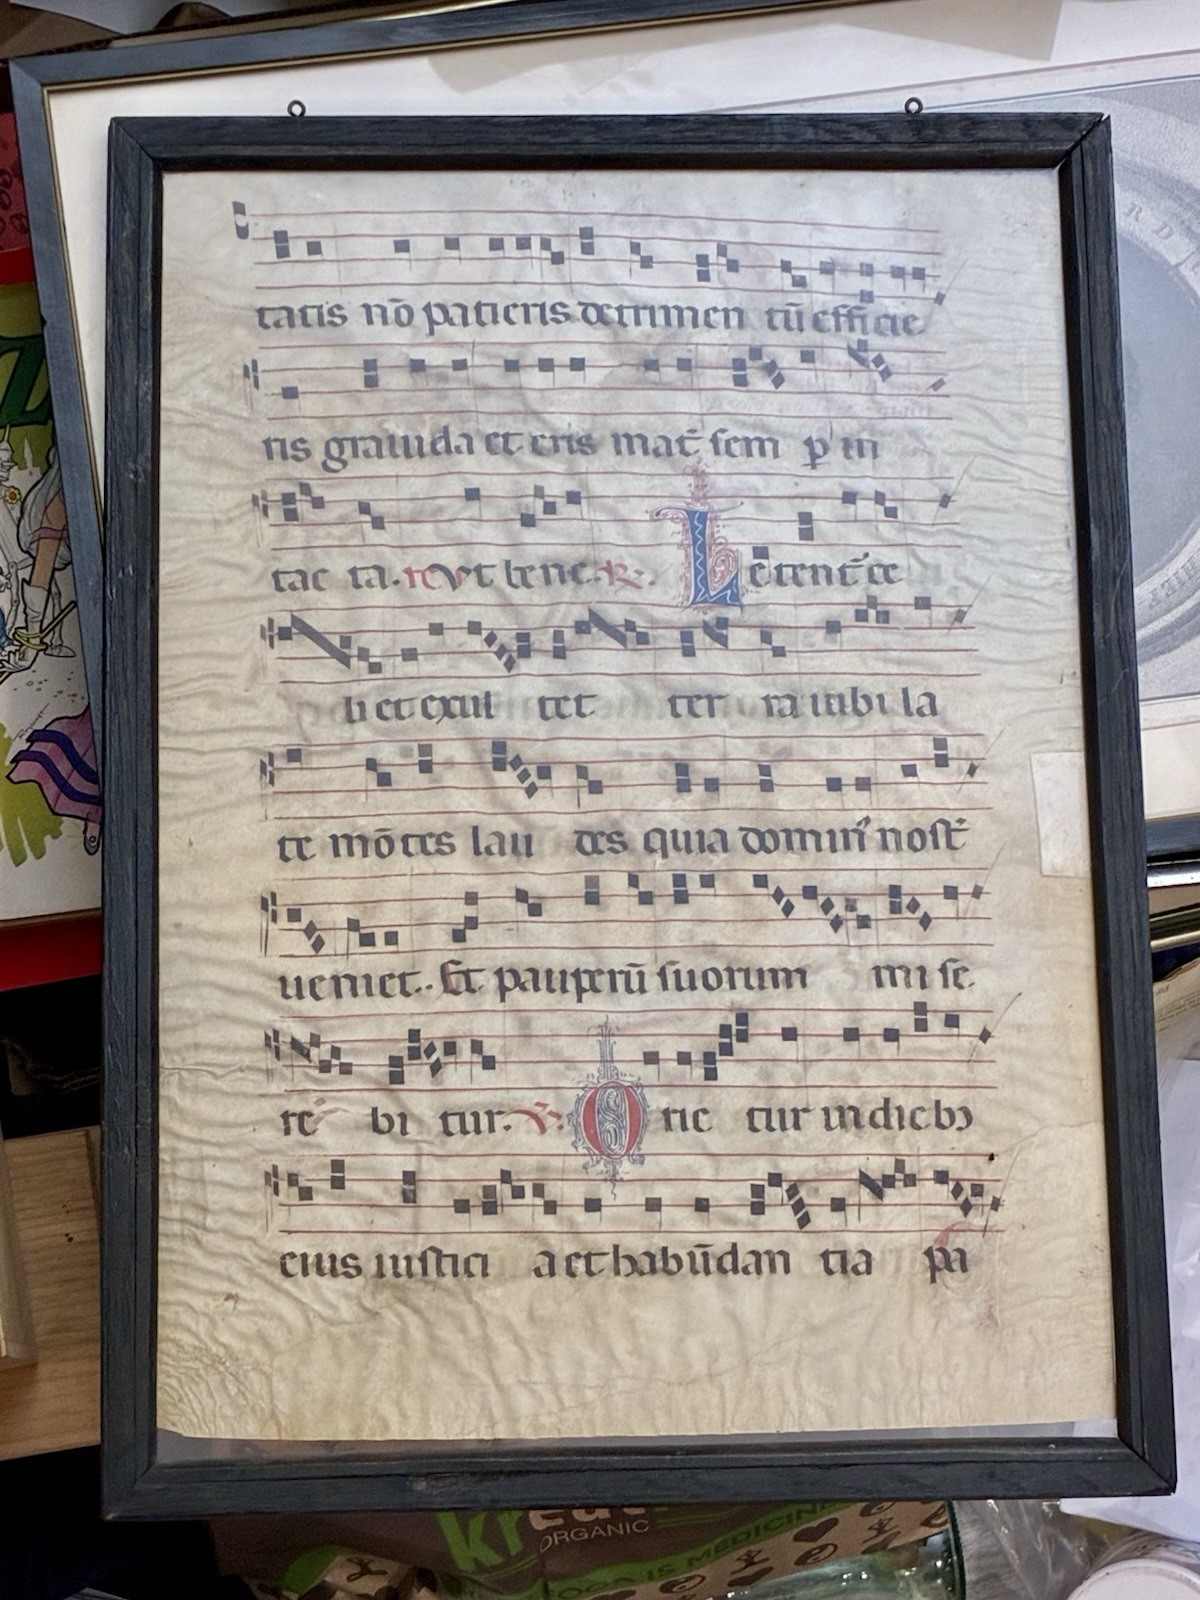 tatis nō patieris detrimen tū efficie
ris grauida et eris mat̄ sem p in
tac ta. v̄ Vt bene. R̄. Letent̄ ce
li et exul tet ter ra iubi la
te mōtes lau des quia domin᷒ nost̄
ueniet. Et pauperū suorum mi se
re bi tur. V̄. Orie tur in dieb᷒
eius iustici a et habūdan tia pa
R D
ORGANIC
IS MEDICINE